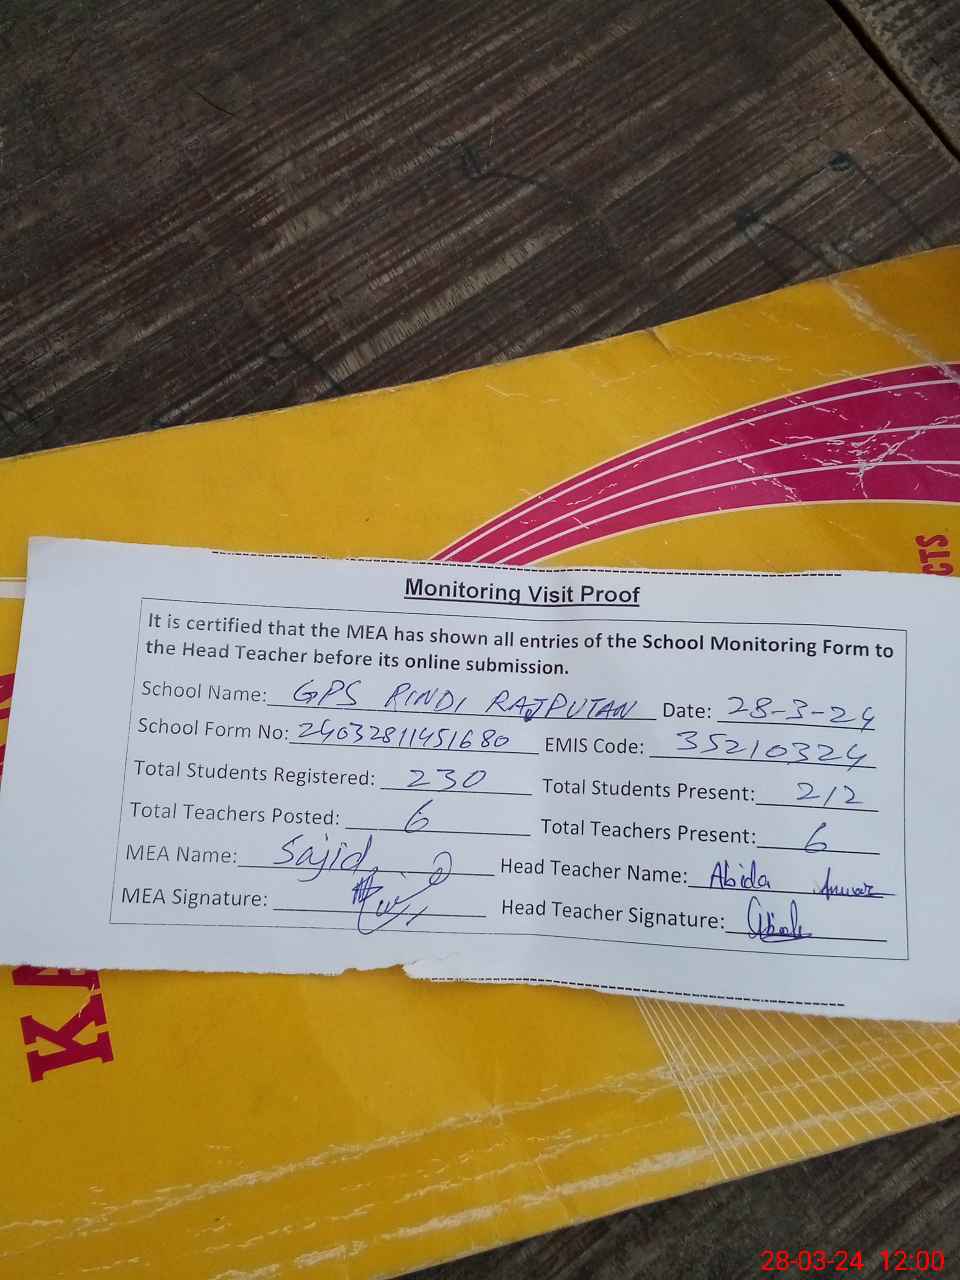 Monitoring Visit Proof
It is certified that the MEA has shown all entries of the School Monitoring Form to
the Head Teacher before its online submission.
School Name: GPS RINDI RAJPUTAN Date: 28-3-24
School Form No: 24032811451680 EMIS Code: 35210324
Total Students Registered: 230 Total Students Present: 212
Total Teachers Posted: 6 Total Teachers Present: 6
MEA Name: Sajid Head Teacher Name: Abida Anwar
MEA Signature: Head Teacher Signature:
CTS
28-03-24 12:00